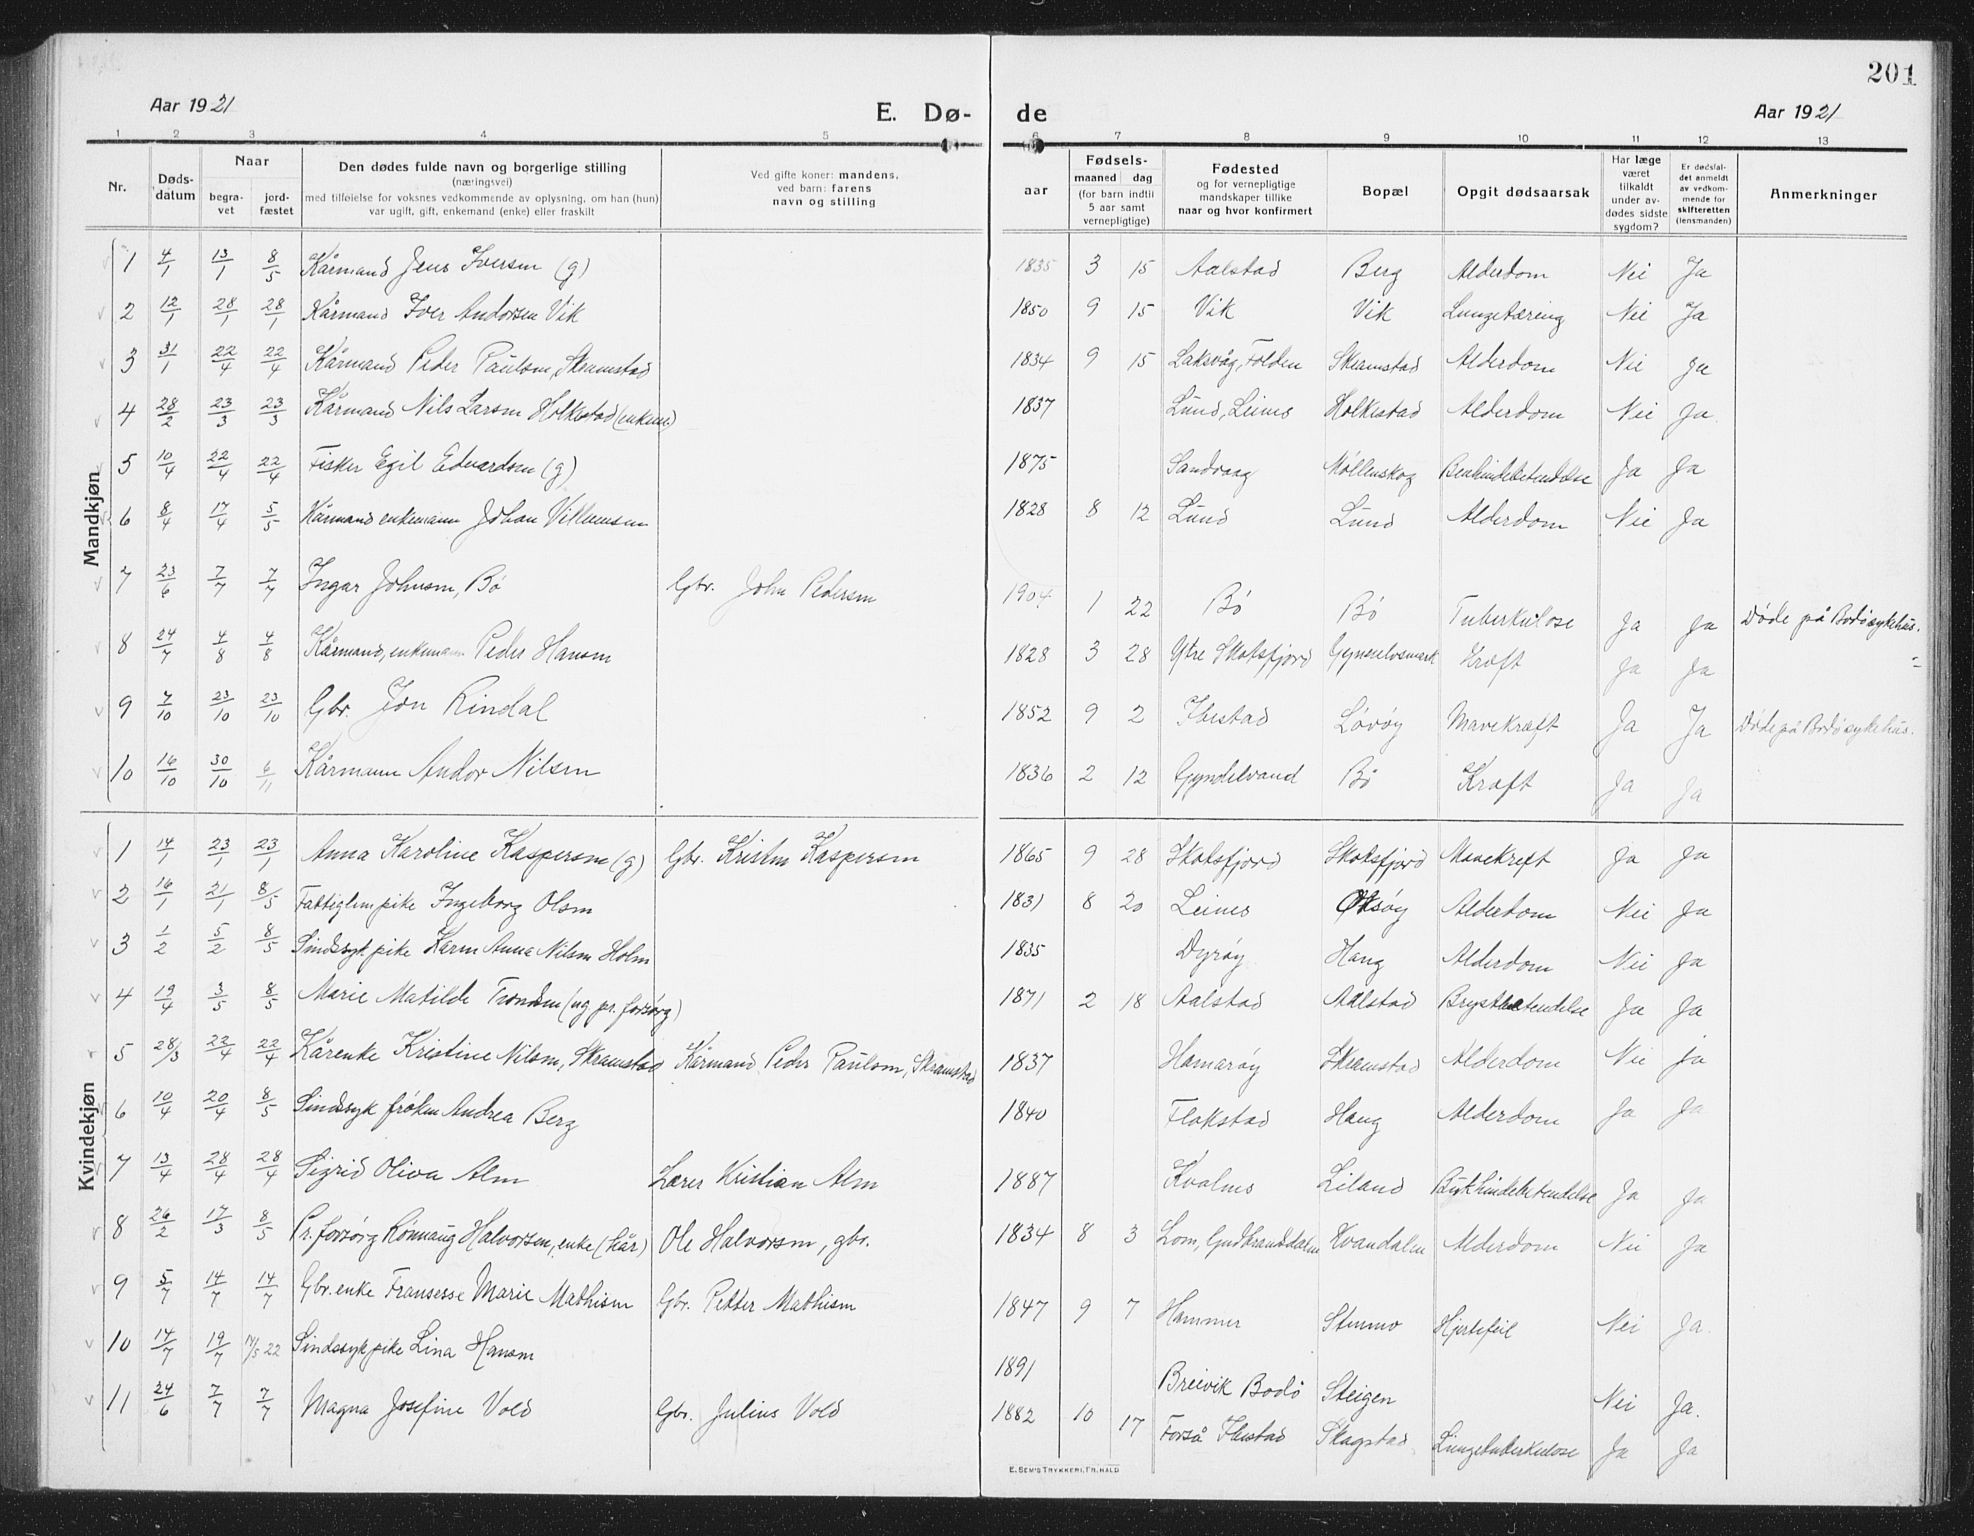 201
Aar 1921
E. Dø-
de
Aar 1921
1 2 3 4 5 6 7 8 9 10 11 12 13
Nr.
Døds-
datum
Naar
begra-
vet
jord-
fæstet
Den dødes fulde navn og borgerlige stilling
(næringsvei)
med tilføielse for voksnes vedkommende av oplysning, om han (hun)
var ugift, gift, enkemand (enke) eller fraskilt
Ved gifte koner: mandens,
ved barn: farens
navn og stilling
aar
Fødsels-
maaned dag
(for barn indtil
5 aar samt
vernepligtige)
Fødested
og for vernepligtige
mandskaper tillike
naar og hvor konfirmert
Bopæl
Opgit dødsaarsak
Har læge
været
tilkaldt
under av-
dødes sidste
sygdom?
Er dødsfal-
det anmeldt
av vedkom-
mende for
skifteretten
(lensmanden)
Anmerkninger
Mandkjøn
1 4/1 13/1 8/5 Kårmand Jens Iversen (g) 1835 3 15 Aalstad Berg Alderdom Nei Ja
2 12/1 28/1 28/1 Kårmand Iver Andorsen Vik 1850 9 15 Vik Vik Lungetæring Nei Ja
3 31/1 22/4 22/4 Kårmand Peder Paulsen, Skramstad 1834 9 15 Laksvåg, Folden Skramstad Alderdom Nei Ja
4 28/2 23/3 23/3 Kårmand Nils Larsen Holkestad (enkem) 1837 Lund, Leines Holkestad Alderdom Nei Ja.
5 10/4 22/4 22/4 Fisker Egil Edvardsen (g) 1875 Sandvaag Møllenskog Benhindebetendelse Ja Ja
6 8/4 17/4 5/5 Kårmand enkemann Johan Villumsen 1828 8 12 Lund Lund Alderdom Nei Ja
7 23/6 7/7 7/7 Ingar Johnsen, Bø Gbr. John Pedersen 1904 1 22 Bø Bø Tuberkulose Ja Ja Døde på Bodø sykehus.
8 24/7 4/8 4/8 Kårmand, enkemann Peder Hansen 1828 3 28 Ytre Skotsfjord Gynnelvsmark Kræft Ja Ja
9 7/10 23/10 23/10 Gbr. Jon Rindal 1852 9 2 Ibestad Løvøy Mavekræft Ja Ja Døde på Bodø sykehus.
10 16/10 30/10 6/11 Kårmann Andor Nilsen 1836 2 12 Gyndelvand Bø Kræft Ja Ja
Kvindekjøn
1 14/1 23/1 23/1 Anna Karoline Kaspersen (g) Gbr. Kristen Kaspersen 1865 9 28 Skotsfjord Skotsfjord Mavekreft Ja Ja
2 16/1 21/1 8/5 Fattiglem pike Ingeborg Olsen 1831 8 20 Leines Oksøy Alderdom Nei Ja
3 1/2 5/2 8/5 Sindssyk pike Karen Anna Nilsen Holm 1835 Dyrøy Haug Alderdom Nei Ja
4 19/4 3/5 8/5 Marie Matilde Trondsen (ug pr. forsørg) 1871 2 18 Aalstad Aalstad Brystbetendelse Ja Ja
5 28/3 22/4 22/4 Kårenke Kristine Nilsen, Skramstad Kårmand Peder Paulsen, Skramstad 1837 Hamarøy Skramstad Alderdom Nei Ja
6 10/4 20/4 8/5 Sindssyk frøken Andrea Berg 1840 Flakstad Haug Alderdom Ja Ja
7 13/4 28/4 28/4 Sigrid Oliva Alm Lærer Kristian Alm 1887 Kvalnes Leiland Bukhindebetendelse Ja Ja
8 26/2 17/3 8/5 Pr. forsørg Rønnaug Halvorsen, enke (kår) Ole Halvorsen, gbr. 1834 8 3 Lom, Gudbrandsdalen Kvandalen Alderdom Nei Ja
9 5/7 14/7 14/7 Gbr. enke Fransesse Marie Mathisen Gbr. Petter Mathisen 1847 9 7 Hammer Stenmo Hjertefeil Nei Ja.
10 14/7 19/7 14/5 22 Sindssyk pike Lina Hansen 1891 Breivik Bodø Steigen Nei Ja.
11 24/6 7/7 7/7 Magna Josefine Vold Gbr. Julius Vold 1882 10 17 Forså Ibestad Skagstad Lungetuberkulose Ja Ja
E. SEM'S TRYKKERI, FR.HALD